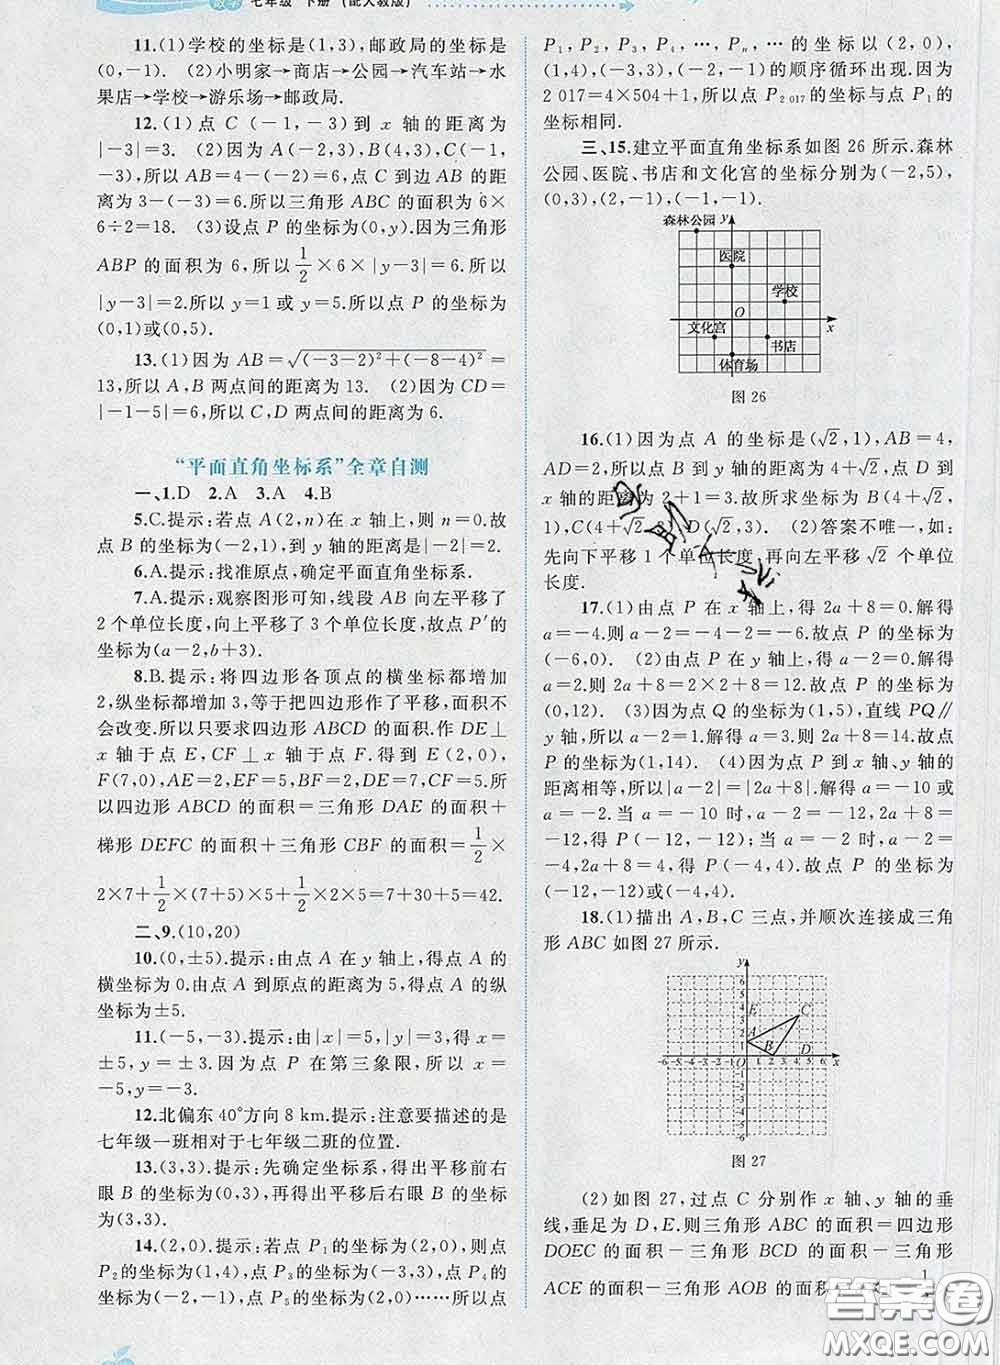 数学 七年级 下册 (配人教版)
11.(1)学校的坐标是(1,3),邮政局的坐标是
(0,-1). (2)小明家→商店→公园→汽车站→水
果店→学校→游乐场→邮政局.
12.(1)点 C (-1,-3)到 x 轴的距离为
|-3|=3. (2)因为 A(-2,3),B(4,3),C(-1,
-3),所以 AB=4-(-2)=6,点 C 到边 AB 的
距离为 3-(-3)=6.所以三角形 ABC 的面积为 6×
6÷2=18. (3)设点 P 的坐标为(0,y).因为三角形
ABP 的面积为 6,所以 1/2 ×6×|y-3|=6.所以
|y-3|=2.所以 y=1 或 y=5.所以点 P 的坐标为
(0,1)或(0,5).
13.(1)因为 AB=√((-3-2)²+(-8-4)²)=
13,所以 A,B 两点间的距离为 13. (2)因为 CD=
|-1-5|=6,所以 C,D 两点间的距离为 6.
“平面直角坐标系”全章自测
一、1.D 2.A 3.A 4.B
5.C.提示:若点 A(2,n)在 x 轴上,则 n=0.故
点 B 的坐标为(-2,1),到 y 轴的距离是|-2|=2.
6.A.提示:找准原点,确定平面直角坐标系.
7.A.提示:观察图形可知,线段 AB 向左平移了
2 个单位长度,向上平移了 3 个单位长度,故点 P′的
坐标为(a-2,b+3).
8.B.提示:将四边形各顶点的横坐标都增加
2,纵坐标都增加 3,等于把四边形作了平移,面积不
会改变.所以只要求四边形 ABCD 的面积.作 DE⊥
x 轴于点 E,CF⊥x 轴于点 F.得到 E(2,0),
F(7,0),AE=2,EF=5,BF=2,DE=7,CF=5.所
以四边形 ABCD 的面积=三角形 DAE 的面积+
梯形 DEFC 的面积+三角形 CBF 的面积= 1/2 ×
2×7+ 1/2 ×(7+5)×5+ 1/2 ×2×5=7+30+5=42.
二、9.(10,20)
10.(0,±5).提示:由点 A 在 y 轴上,得点 A 的
横坐标为 0.因为点 A 到原点的距离为 5,得点 A 的纵
坐标为±5.
11.(-5,-3).提示:由|x|=5,|y|=3,得 x=
±5,y=±3.因为点 P 在第三象限,所以 x=
-5,y=-3.
12.北偏东 40°方向 8 km.提示:注意要描述的是
七年级一班相对于七年级二班的位置.
13.(3,3).提示:先确定坐标系,得出平移前右
眼 B 的坐标为(0,3),再得出平移后右眼 B 的坐标
为(3,3).
14.(2,0).提示:若点 P₁的坐标为(2,0),则点
P₂的坐标为(1,4),点 P₃的坐标为(-3,3),点 P₄的
坐标为(-2,-1),点 P₅的坐标为(2,0)……所以点
P₁,P₂,P₃,P₄,…,Pₙ,… 的坐标以(2,0),
(1,4),(-3,3),(-2,-1)的顺序循环出现.因为
2 017=4×504+1,所以点 P₂ ₀₁₇的坐标与点 P₁的
坐标相同.
三、15.建立平面直角坐标系如图 26 所示.森林
公园、医院、书店和文化宫的坐标分别为(-2,5),
(0,3),(2,-1),(-1,-1).
森林公园 y
医院
学校
O
x
文化宫
书店
体育场
图 26
16.(1)因为点 A 的坐标是(√2,1),AB=4,
AD=2,所以点 B 到 y 轴的距离为 4+√2,点 D 到
x 轴的距离为 2+1=3.故所求坐标为 B(4+√2,
1),C(4+√2,3),D(√2,3). (2)答案不唯一,如:
先向下平移 1 个单位长度,再向左平移 √2 个单位
长度.
17.(1)由点 P 在 x 轴上,得 2a+8=0.解得
a=-4.则 a-2=-4-2=-6.故点 P 的坐标为
(-6,0). (2)由点 P 在 y 轴上,得 a-2=0.解得
a=2.则 2a+8=2×2+8=12.故点 P 的坐标为
(0,12). (3)因为点 Q 的坐标为(1,5),直线 PQ∥
y 轴,所以 a-2=1.解得 a=3.则 2a+8=14.故点
P 的坐标为(1,14). (4)因为点 P 到 x 轴、y 轴的
距离相等,所以|a-2|=|2a+8|.解得 a=-10 或
a=-2.当 a=-10 时,a-2=-12,2a+8=
-12,得 P(-12,-12);当 a=-2 时,a-2=
-4,2a+8=4,得 P(-4,4).故点 P 的坐标为
(-12,-12)或(-4,4).
18.(1)描出 A,B,C 三点,并顺次连接成三角
形 ABC 如图 27 所示.
y
E
C
A
B
D
O
x
-6-5-4-3-2-1 1 2 3 4 5 6
图 27
(2)如图 27,过点 C 分别作 x 轴、y 轴的垂
线,垂足为 D,E.则三角形 ABC 的面积=四边形
DOEC 的面积-三角形 BCD 的面积-三角形
ACE 的面积-三角形 AOB 的面积
答案圈
MXQE.COM